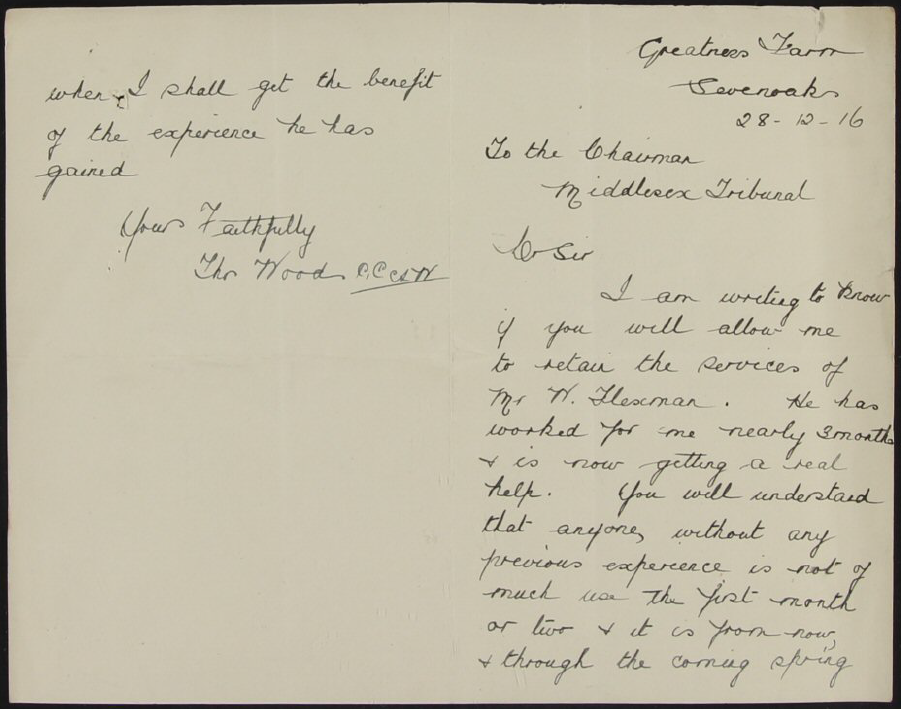 Greatness Farm
Sevenoaks
28-12-16
To the Chairman
Middlesex Tribunal
Dr Sir
I am writing to know
if you will allow me
to retain the services of
Mr W. Flexman. He has
worked for me nearly 3 months
& is now getting a real
help. You will understand
that anyone, without any
previous experience is not of
much use the first month
or two & it is from now,
& through the coming spring
when I shall get the benefit
of the experience he has
gained
Yours Faithfully
Thos Wood